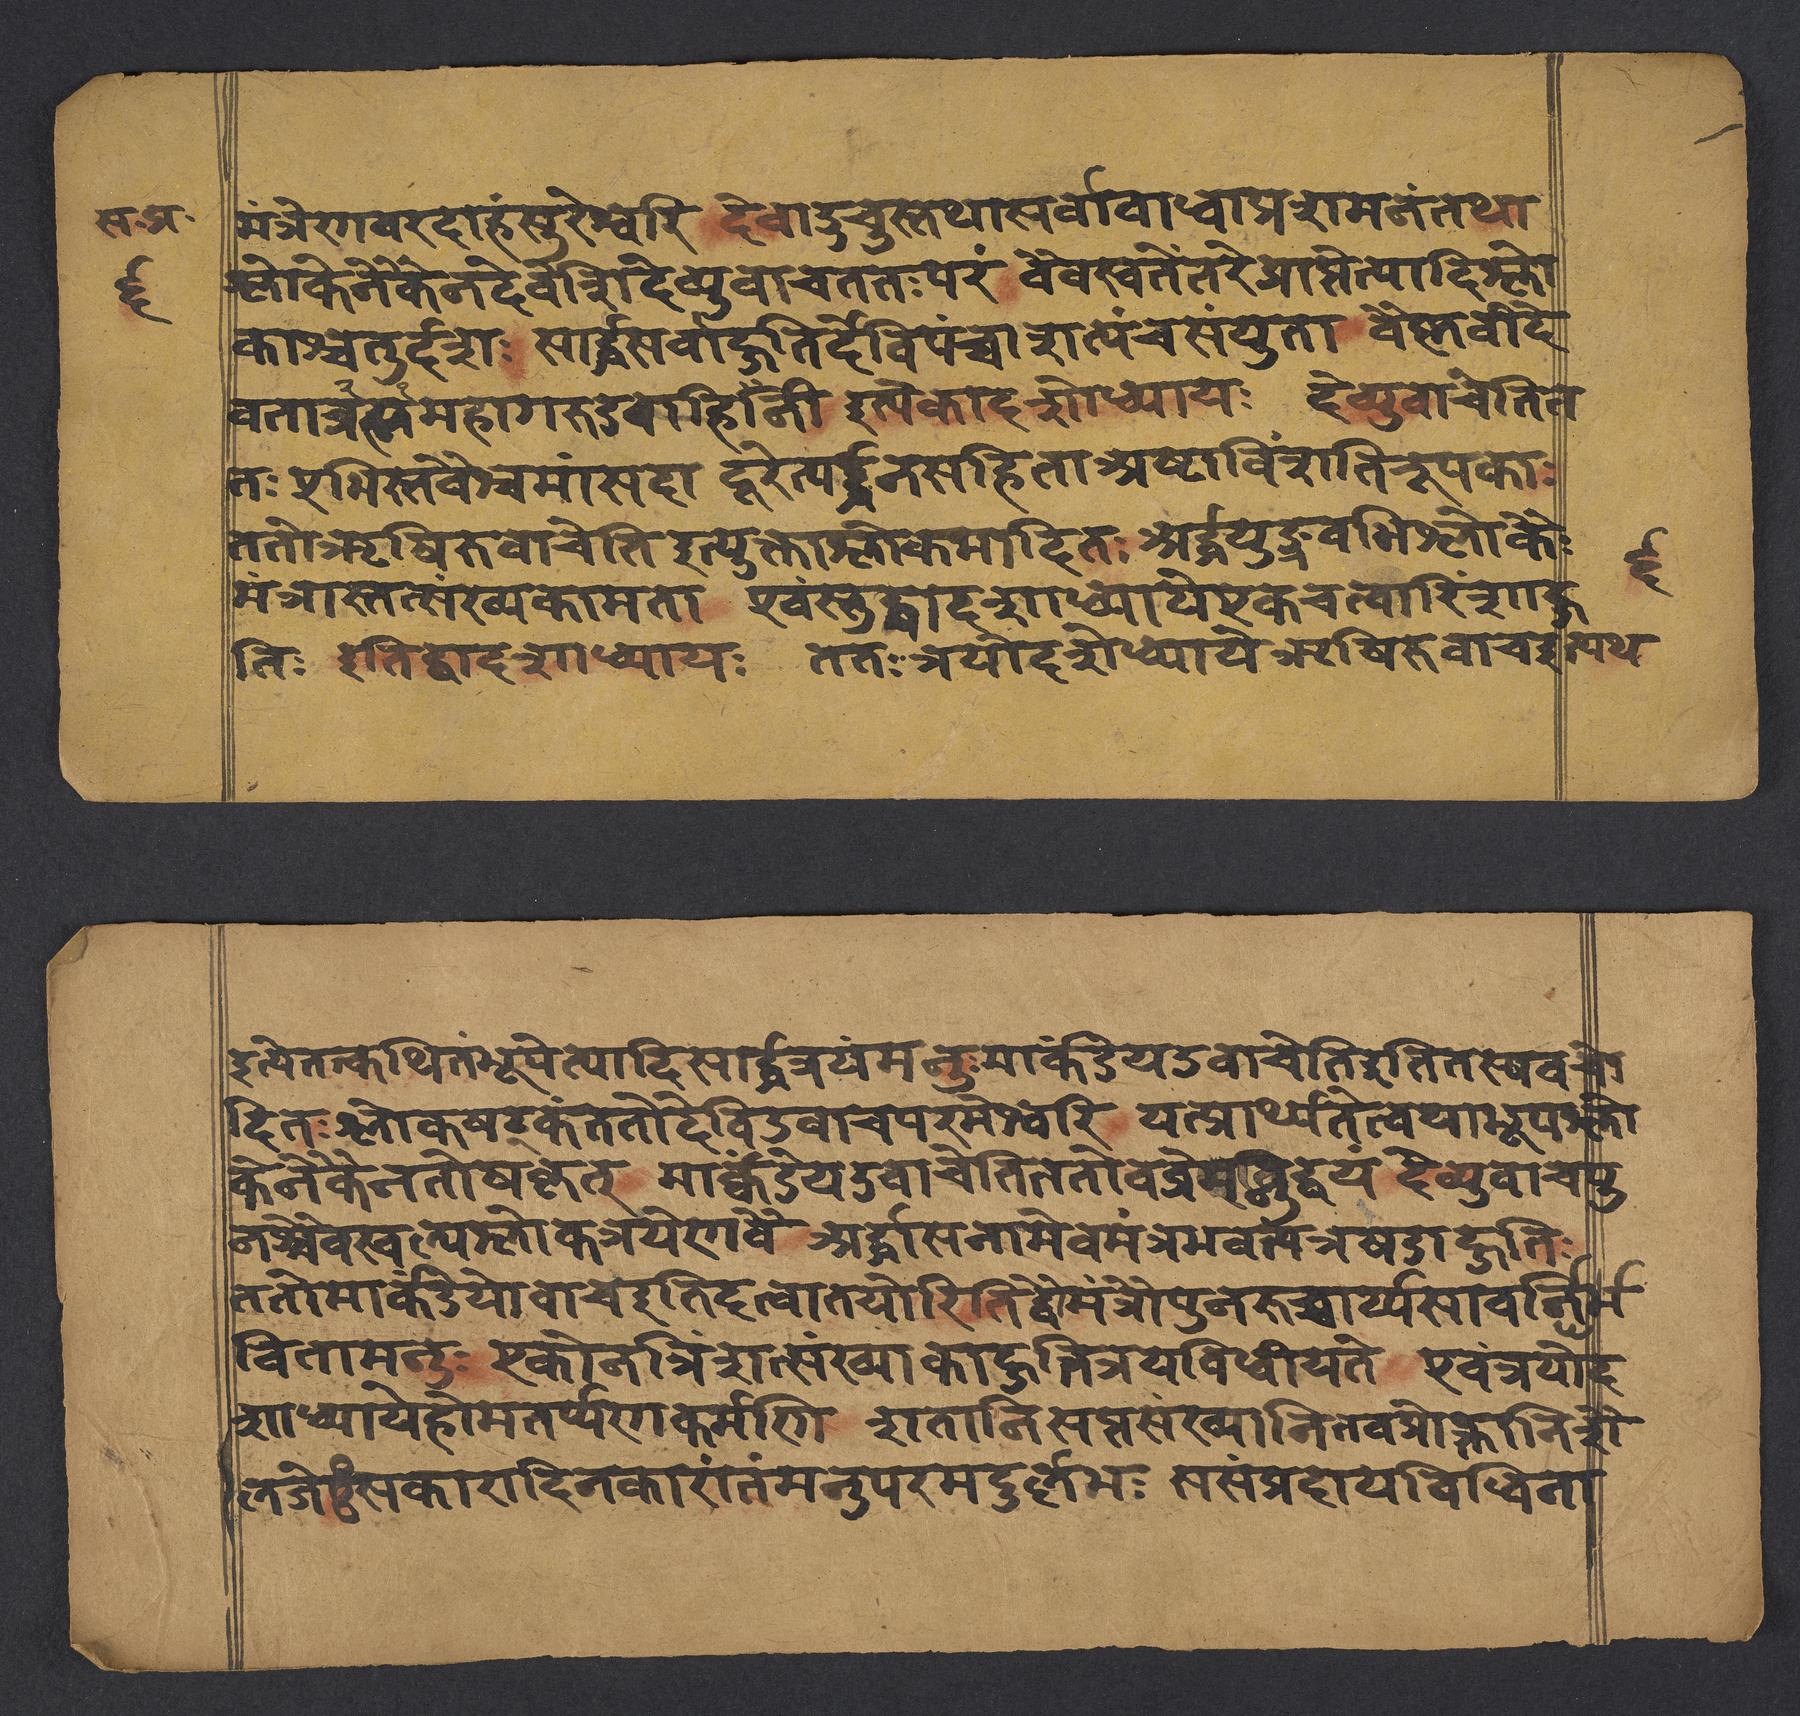 स.प्र.
मंत्रेणवरदाहंसुरेश्वरि देवाऊचुस्तथासर्वाबाधाप्रशमनंतथा
श्लोकेनैकेनदेवेशिदेव्युवाचततःपरं वैवस्वतेंतरेप्राप्तेत्यादिश्लो
काश्चतुर्द्दश: सार्द्धसर्वाहुतिर्देविपंचाशत्पंचसंयुता वैस्नवीदे
वतामहागरुडवाहिनी इत्येकादशोध्यायः देव्युवाचेतित
तः एभिस्तवैश्चमांसदा दूरेत्यर्द्धेनसहिताअष्टाविंशतिरूपकाः
ततोऋषिरुवाचेति इत्युक्ताश्लोकमादितः अर्द्धयुङ्नवभिश्लोकैः
मंत्रास्तत्संख्यकामता एवंस्तुद्वादशाध्यायेएकचत्वारिंशाहु
तिः इतिद्वादशाध्यायः ततःत्रयोदशेध्यायेऋषिरुवाचइत्यथ
६
६
इत्येतत्कथितंभूपेत्यादिसार्द्धत्रयंमनुःमार्कंडेयउवाचेतिइतितस्यवचो
दितःश्लोकषट्कंततोदेविउवाचपरमेश्वरि यत्प्रार्थ्यतेत्वयाभूपश्लो
केनैकेनतोषकृत् मार्कंडेयउवाचेतिततोवव्रेद्वयं देव्युवाचपु
नश्चैवस्वल्पश्लोकत्रयेणवै अर्द्धासनामेवमंत्रभवत्यत्रषडाहुतिः
ततोमार्कंडेयोवाचइतिदत्वातयोरितिद्वौमंत्रौपुनरुच्चार्य्यसावर्निर्भ
वितामनुः एकोनत्रिंशत्संख्याकाहुतित्रयविधीयते एवंत्रयोद
शाध्यायेहोमतर्प्यणकर्मणि शतानिसप्तसंख्यानितवप्रोक्तानिशै
लजेसकारादिनकारांतंमनुपरमदुर्लभः ससंप्रदायविधिना